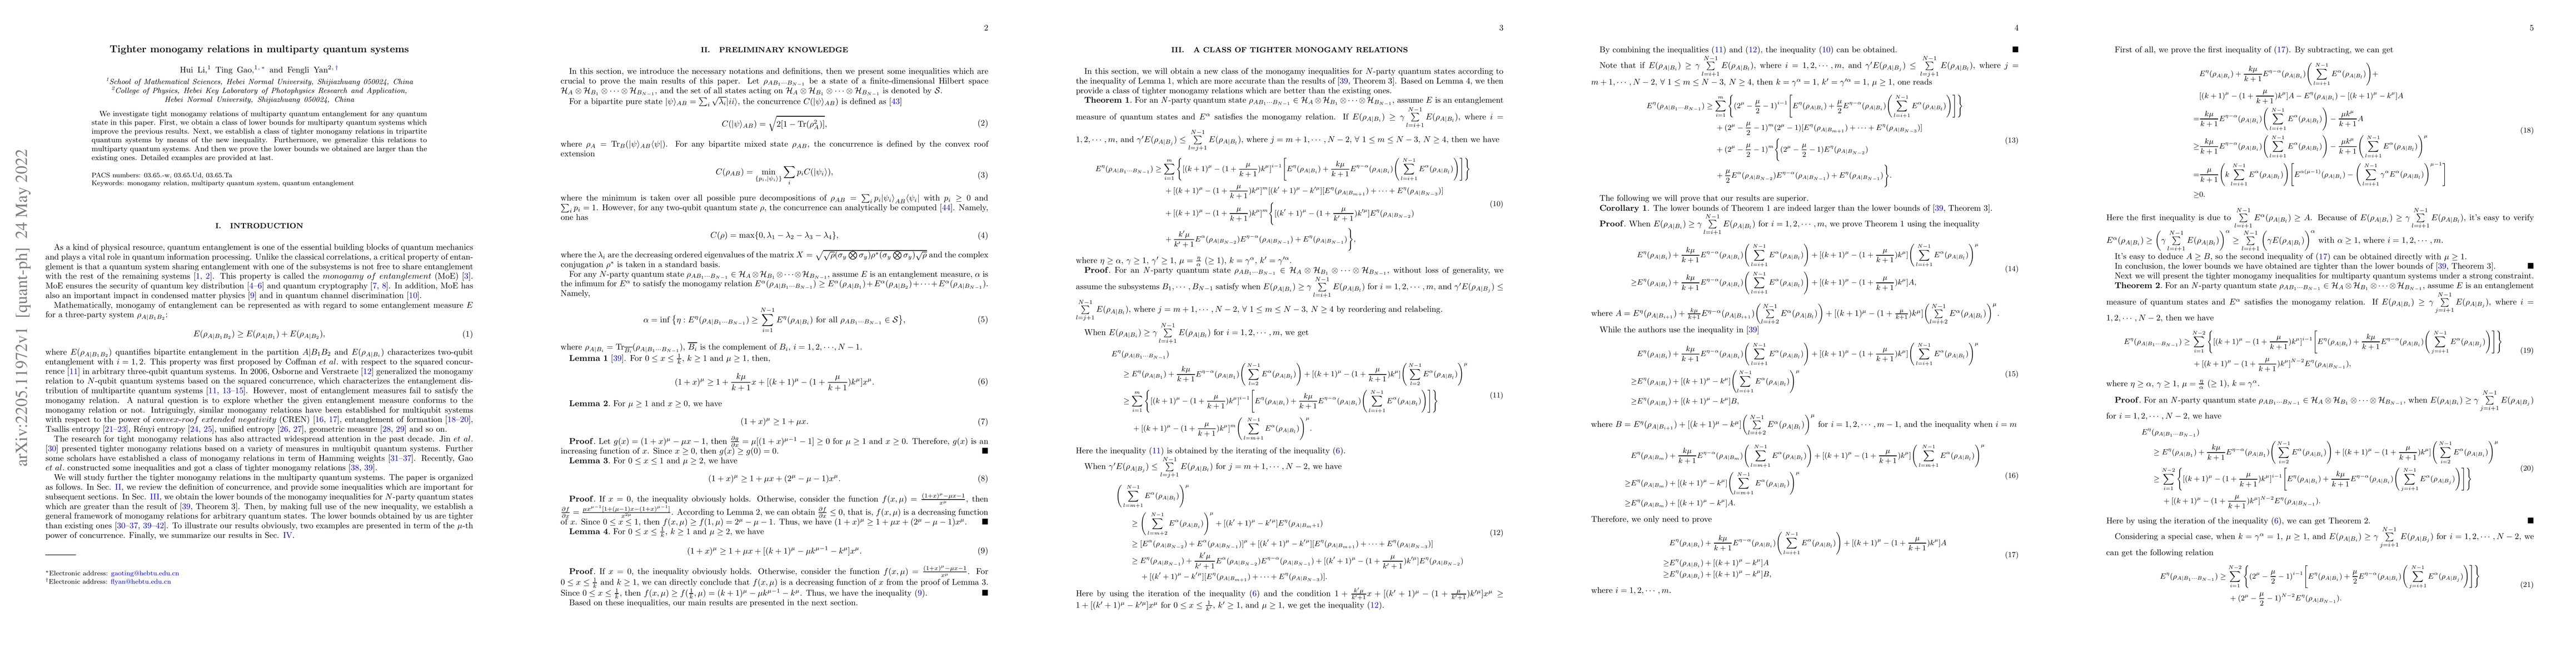 arXiv:2205.11972v1 [quant-ph] 24 May 2022
Tighter monogamy relations in multiparty quantum systems
Hui Li,¹ Ting Gao,¹,* and Fengli Yan²,†
¹School of Mathematical Sciences, Hebei Normal University, Shijiazhuang 050024, China
²College of Physics, Hebei Key Laboratory of Photophysics Research and Application,
Hebei Normal University, Shijiazhuang 050024, China
We investigate tight monogamy relations of multiparty quantum entanglement for any quantum
state in this paper. First, we obtain a class of lower bounds for multiparty quantum systems which
improve the previous results. Next, we establish a class of tighter monogamy relations in tripartite
quantum systems by means of the new inequality. Furthermore, we generalize this relations to
multiparty quantum systems. And then we prove the lower bounds we obtained are larger than the
existing ones. Detailed examples are provided at last.
PACS numbers: 03.65.-w, 03.65.Ud, 03.65.Ta
Keywords: monogamy relation, multiparty quantum system, quantum entanglement
I. INTRODUCTION
As a kind of physical resource, quantum entanglement is one of the essential building blocks of quantum mechanics
and plays a vital role in quantum information processing. Unlike the classical correlations, a critical property of entan-
glement is that a quantum system sharing entanglement with one of the subsystems is not free to share entanglement
with the rest of the remaining systems [1, 2]. This property is called the monogamy of entanglement (MoE) [3].
MoE ensures the security of quantum key distribution [4–6] and quantum cryptography [7, 8]. In addition, MoE has
also an important impact in condensed matter physics [9] and in quantum channel discrimination [10].
Mathematically, monogamy of entanglement can be represented as with regard to some entanglement measure E
for a three-party system ρ_{A|B₁B₂}:
E(ρ_{A|B₁B₂}) ≥ E(ρ_{A|B₁}) + E(ρ_{A|B₂}), (1)
where E(ρ_{A|B₁B₂}) quantifies bipartite entanglement in the partition A|B₁B₂ and E(ρ_{A|B_i}) characterizes two-qubit
entanglement with i = 1, 2. This property was first proposed by Coffman et al. with respect to the squared concur-
rence [11] in arbitrary three-qubit quantum systems. In 2006, Osborne and Verstraete [12] generalized the monogamy
relation to N-qubit quantum systems based on the squared concurrence, which characterizes the entanglement dis-
tribution of multipartite quantum systems [11, 13–15]. However, most of entanglement measures fail to satisfy the
monogamy relation. A natural question is to explore whether the given entanglement measure conforms to the
monogamy relation or not. Intriguingly, similar monogamy relations have been established for multiqubit systems
with respect to the power of convex-roof extended negativity (CREN) [16, 17], entanglement of formation [18–20],
Tsallis entropy [21–23], Rényi entropy [24, 25], unified entropy [26, 27], geometric measure [28, 29] and so on.
The research for tight monogamy relations has also attracted widespread attention in the past decade. Jin et al.
[30] presented tighter monogamy relations based on a variety of measures in multiqubit quantum systems. Further
some scholars have established a class of monogamy relations in term of Hamming weights [31–37]. Recently, Gao
et al. constructed some inequalities and got a class of tighter monogamy relations [38, 39].
We will study further the tighter monogamy relations in the multiparty quantum systems. The paper is organized
as follows. In Sec. II, we review the definition of concurrence, and provide some inequalities which are important for
subsequent sections. In Sec. III, we obtain the lower bounds of the monogamy inequalities for N-party quantum states
which are greater than the result of [39, Theorem 3]. Then, by making full use of the new inequality, we establish a
general framework of monogamy relations for arbitrary quantum states. The lower bounds obtained by us are tighter
than existing ones [30–37, 39–42]. To illustrate our results obviously, two examples are presented in term of the μ-th
power of concurrence. Finally, we summarize our results in Sec. IV.
*Electronic address: gaoting@hebtu.edu.cn
†Electronic address: flyan@hebtu.edu.cn
2
II. PRELIMINARY KNOWLEDGE
In this section, we introduce the necessary notations and definitions, then we present some inequalities which are
crucial to prove the main results of this paper. Let ρ_{AB₁···B_{N−1}} be a state of a finite-dimensional Hilbert space
H_A ⊗ H_{B₁} ⊗ ··· ⊗ H_{B_{N−1}}, and the set of all states acting on H_A ⊗ H_{B₁} ⊗ ··· ⊗ H_{B_{N−1}} is denoted by S.
For a bipartite pure state |ψ⟩_{AB} = ∑_i √λ_i|ii⟩, the concurrence C(|ψ⟩_{AB}) is defined as [43]
C(|ψ⟩_{AB}) = √(2[1 − Tr(ρ_A²)]), (2)
where ρ_A = Tr_B(|ψ⟩_{AB}⟨ψ|). For any bipartite mixed state ρ_{AB}, the concurrence is defined by the convex roof
extension
C(ρ_{AB}) = min_{{p_i,|ψ_i⟩}} ∑_i p_i C(|ψ_i⟩), (3)
where the minimum is taken over all possible pure decompositions of ρ_{AB} = ∑_i p_i|ψ_i⟩_{AB}⟨ψ_i| with p_i ≥ 0 and
∑_i p_i = 1. However, for any two-qubit quantum state ρ, the concurrence can analytically be computed [44]. Namely,
one has
C(ρ) = max{0, λ₁ − λ₂ − λ₃ − λ₄}, (4)
where the λ_i are the decreasing ordered eigenvalues of the matrix X = √(√ρ(σ_y ⊗ σ_y)ρ*(σ_y ⊗ σ_y)√ρ) and the complex
conjugation ρ* is taken in a standard basis.
For any N-partite quantum state ρ_{AB₁···B_{N−1}} ∈ H_A ⊗ H_{B₁} ⊗ ··· ⊗ H_{B_{N−1}}, assume E is an entanglement measure, α is
the infimum for E^α to satisfy the monogamy relation E^α(ρ_{A|B₁···B_{N−1}}) ≥ E^α(ρ_{A|B₁}) + E^α(ρ_{A|B₂}) + ··· + E^α(ρ_{A|B_{N−1}}).
Namely,
α = inf {η : E^η(ρ_{A|B₁···B_{N−1}}) ≥ ∑_{i=1}^{N−1} E^η(ρ_{A|B_i}) for all ρ_{AB₁···B_{N−1}} ∈ S}, (5)
where ρ_{A|B_i} = Tr_{\overline{B_i}}(ρ_{A|B₁···B_{N−1}}), \overline{B_i} is the complement of B_i, i = 1, 2, ··· , N − 1.
Lemma 1 [39]. For 0 ≤ x ≤ 1/k, k ≥ 1 and μ ≥ 1, then,
(1 + x)^μ ≥ 1 + (kμ/(k+1))x + [(k + 1)^μ − (1 + μ/(k+1))k^μ]x^μ. (6)
Lemma 2. For μ ≥ 1 and x ≥ 0, we have
(1 + x)^μ ≥ 1 + μx. (7)
Proof. Let g(x) = (1 + x)^μ − μx − 1, then ∂g/∂x = μ[(1 + x)^{μ−1} − 1] ≥ 0 for μ ≥ 1 and x ≥ 0. Therefore, g(x) is an
increasing function of x. Since x ≥ 0, then g(x) ≥ g(0) = 0. ■
Lemma 3. For 0 ≤ x ≤ 1 and μ ≥ 2, we have
(1 + x)^μ ≥ 1 + μx + (2^μ − μ − 1)x^μ. (8)
Proof. If x = 0, the inequality obviously holds. Otherwise, consider the function f(x, μ) = ((1+x)^μ−μx−1)/x^μ, then
∂f/∂x = μx^{μ−1}[1+(μ−1)x−(1+x)^{μ−1}]/x^{2μ}. According to Lemma 2, we can obtain ∂f/∂x ≤ 0, that is, f(x, μ) is a decreasing function
of x. Since 0 ≤ x ≤ 1, then f(x, μ) ≥ f(1, μ) = 2^μ − μ − 1. Thus, we have (1 + x)^μ ≥ 1 + μx + (2^μ − μ − 1)x^μ. ■
Lemma 4. For 0 ≤ x ≤ 1/k, k ≥ 1 and μ ≥ 2, we have
(1 + x)^μ ≥ 1 + μx + [(k + 1)^μ − μk^{μ−1} − k^μ]x^μ. (9)
Proof. If x = 0, the inequality obviously holds. Otherwise, consider the function f(x, μ) = ((1+x)^μ−μx−1)/x^μ. For
0 ≤ x ≤ 1/k and k ≥ 1, we can directly conclude that f(x, μ) is a decreasing function of x from the proof of Lemma 3.
Since 0 ≤ x ≤ 1/k, then f(x, μ) ≥ f(1/k, μ) = (k + 1)^μ − μk^{μ−1} − k^μ. Thus, we have the inequality (9). ■
Based on these inequalities, our main results are presented in the next section.
3
III. A CLASS OF TIGHTER MONOGAMY RELATIONS
In this section, we will obtain a new class of the monogamy inequalities for N-party quantum states according to
the inequality of Lemma 1, which are more accurate than the results of [39, Theorem 3]. Based on Lemma 4, we then
provide a class of tighter monogamy relations which are better than the existing ones.
Theorem 1. For an N-partite quantum state ρ_{AB₁···B_{N−1}} ∈ H_A ⊗ H_{B₁} ⊗ ··· ⊗ H_{B_{N−1}}, assume E is an entanglement
measure of quantum states and E^α satisfies the monogamy relation. If E(ρ_{A|B_i}) ≥ γ ∑_{l=i+1}^{N−1} E(ρ_{A|B_l}), where i =
1, 2, ··· , m, and γ′E(ρ_{A|B_j}) ≤ ∑_{l=j+1}^{N−1} E(ρ_{A|B_l}), where j = m + 1, ··· , N − 2, ∀ 1 ≤ m ≤ N − 3, N ≥ 4, then we have
E^η(ρ_{A|B₁···B_{N−1}}) ≥ ∑_{i=1}^{m} {[(k + 1)^μ − (1 + μ/(k+1))k^μ]^{i−1}[E^η(ρ_{A|B_i}) + (kμ/(k+1))E^{η−α}(ρ_{A|B_i})(∑_{l=i+1}^{N−1} E^α(ρ_{A|B_l}))]}
+ [(k + 1)^μ − (1 + μ/(k+1))k^μ]^m[(k′ + 1)^μ − k′^μ][E^η(ρ_{A|B_{m+1}}) + ··· + E^η(ρ_{A|B_{N−3}})] (10)
+ [(k + 1)^μ − (1 + μ/(k+1))k^μ]^m{[(k′ + 1)^μ − (1 + μ/(k′+1))k′^μ]E^η(ρ_{A|B_{N−2}})
+ (k′μ/(k′+1))E^α(ρ_{A|B_{N−2}})E^{η−α}(ρ_{A|B_{N−1}}) + E^η(ρ_{A|B_{N−1}})},
where η ≥ α, γ ≥ 1, γ′ ≥ 1, μ = η/α (≥ 1), k = γ^α, k′ = γ′^α.
Proof. For an N-partite quantum state ρ_{AB₁···B_{N−1}} ∈ H_A ⊗ H_{B₁} ⊗ ··· ⊗ H_{B_{N−1}}, without loss of generality, we
assume the subsystems B₁, ··· , B_{N−1} satisfy when E(ρ_{A|B_i}) ≥ γ ∑_{l=i+1}^{N−1} E(ρ_{A|B_l}) for i = 1, 2, ··· , m, and γ′E(ρ_{A|B_j}) ≤
∑_{l=j+1}^{N−1} E(ρ_{A|B_l}), where j = m + 1, ··· , N − 2, ∀ 1 ≤ m ≤ N − 3, N ≥ 4 by reordering and relabeling.
When E(ρ_{A|B_i}) ≥ γ ∑_{l=i+1}^{N−1} E(ρ_{A|B_l}) for i = 1, 2, ··· , m, we get
E^η(ρ_{A|B₁···B_{N−1}})
≥ E^η(ρ_{A|B₁}) + (kμ/(k+1))E^{η−α}(ρ_{A|B₁})(∑_{l=2}^{N−1} E^α(ρ_{A|B_l})) + [(k + 1)^μ − (1 + μ/(k+1))k^μ](∑_{l=2}^{N−1} E^α(ρ_{A|B_l}))^μ
≥ ∑_{i=1}^{m} {[(k + 1)^μ − (1 + μ/(k+1))k^μ]^{i−1}[E^η(ρ_{A|B_i}) + (kμ/(k+1))E^{η−α}(ρ_{A|B_i})(∑_{l=i+1}^{N−1} E^α(ρ_{A|B_l}))]} (11)
+ [(k + 1)^μ − (1 + μ/(k+1))k^μ]^m(∑_{l=m+1}^{N−1} E^α(ρ_{A|B_l}))^μ.
Here the inequality (11) is obtained by the iterating of the inequality (6).
When γ′E(ρ_{A|B_j}) ≤ ∑_{l=j+1}^{N−1} E(ρ_{A|B_l}) for j = m + 1, ··· , N − 2, we have
(∑_{l=m+1}^{N−1} E^α(ρ_{A|B_l}))^μ
≥ (∑_{l=m+2}^{N−1} E^α(ρ_{A|B_l}))^μ + [(k′ + 1)^μ − k′^μ]E^η(ρ_{A|B_{m+1}})
≥ [E^α(ρ_{A|B_{N−2}}) + E^α(ρ_{A|B_{N−1}})]^μ + [(k′ + 1)^μ − k′^μ][E^η(ρ_{A|B_{m+1}}) + ··· + E^η(ρ_{A|B_{N−3}})] (12)
≥ E^η(ρ_{A|B_{N−1}}) + (k′μ/(k′+1))E^α(ρ_{A|B_{N−2}})E^{η−α}(ρ_{A|B_{N−1}}) + [(k′ + 1)^μ − (1 + μ/(k′+1))k′^μ]E^η(ρ_{A|B_{N−2}})
+ [(k′ + 1)^μ − k′^μ][E^η(ρ_{A|B_{m+1}}) + ··· + E^η(ρ_{A|B_{N−3}})].
Here by using the iteration of the inequality (6) and the condition 1 + (k′μ/(k′+1))x + [(k′ + 1)^μ − (1 + μ/(k′+1))k′^μ]x^μ ≥
1 + [(k′ + 1)^μ − k′^μ]x^μ for 0 ≤ x ≤ 1/k′, k′ ≥ 1, and μ ≥ 1, we get the inequality (12).
4
By combining the inequalities (11) and (12), the inequality (10) can be obtained. ■
Note that if E(ρ_{A|B_i}) ≥ γ ∑_{l=i+1}^{N−1} E(ρ_{A|B_l}), where i = 1, 2, ··· , m, and γ′E(ρ_{A|B_j}) ≤ ∑_{l=j+1}^{N−1} E(ρ_{A|B_l}), where j =
m + 1, ··· , N − 2, ∀ 1 ≤ m ≤ N − 3, N ≥ 4, then k = γ^α = 1, k′ = γ′^α = 1, μ ≥ 1, one reads
E^η(ρ_{A|B₁···B_{N−1}}) ≥ ∑_{i=1}^{m} {(2^μ − μ/2 − 1)^{i−1}[E^η(ρ_{A|B_i}) + (μ/2)E^{η−α}(ρ_{A|B_i})(∑_{l=i+1}^{N−1} E^α(ρ_{A|B_l}))]}
+ (2^μ − μ/2 − 1)^m(2^μ − 1)[E^η(ρ_{A|B_{m+1}}) + ··· + E^η(ρ_{A|B_{N−3}})] (13)
+ (2^μ − μ/2 − 1)^m{(2^μ − μ/2 − 1)E^η(ρ_{A|B_{N−2}})
+ (μ/2)E^α(ρ_{A|B_{N−2}})E^{η−α}(ρ_{A|B_{N−1}}) + E^η(ρ_{A|B_{N−1}})}.
The following we will prove that our results are superior.
Corollary 1. The lower bounds of Theorem 1 are indeed larger than the lower bounds of [39, Theorem 3].
Proof. When E(ρ_{A|B_i}) ≥ γ ∑_{l=i+1}^{N−1} E(ρ_{A|B_l}) for i = 1, 2, ··· , m, we prove Theorem 1 using the inequality
E^η(ρ_{A|B_i}) + (kμ/(k+1))E^{η−α}(ρ_{A|B_i})(∑_{l=i+1}^{N−1} E^α(ρ_{A|B_l})) + [(k + 1)^μ − (1 + μ/(k+1))k^μ](∑_{l=i+1}^{N−1} E^α(ρ_{A|B_l}))^μ (14)
≥E^η(ρ_{A|B_i}) + (kμ/(k+1))E^{η−α}(ρ_{A|B_i})(∑_{l=i+1}^{N−1} E^α(ρ_{A|B_l})) + [(k + 1)^μ − (1 + μ/(k+1))k^μ]A,
where A = E^η(ρ_{A|B_{i+1}}) + (kμ/(k+1))E^{η−α}(ρ_{A|B_{i+1}})(∑_{l=i+2}^{N−1} E^α(ρ_{A|B_l})) + [(k + 1)^μ − (1 + μ/(k+1))k^μ](∑_{l=i+2}^{N−1} E^α(ρ_{A|B_l}))^μ.
While the authors use the inequality in [39]
E^η(ρ_{A|B_i}) + (kμ/(k+1))E^{η−α}(ρ_{A|B_i})(∑_{l=i+1}^{N−1} E^α(ρ_{A|B_l})) + [(k + 1)^μ − (1 + μ/(k+1))k^μ](∑_{l=i+1}^{N−1} E^α(ρ_{A|B_l}))^μ
≥E^η(ρ_{A|B_i}) + [(k + 1)^μ − k^μ](∑_{l=i+1}^{N−1} E^α(ρ_{A|B_l}))^μ (15)
≥E^η(ρ_{A|B_i}) + [(k + 1)^μ − k^μ]B,
where B = E^η(ρ_{A|B_{i+1}}) + [(k + 1)^μ − k^μ](∑_{l=i+2}^{N−1} E^α(ρ_{A|B_l}))^μ for i = 1, 2, ··· , m − 1, and the inequality when i = m
E^η(ρ_{A|B_m}) + (kμ/(k+1))E^{η−α}(ρ_{A|B_m})(∑_{l=m+1}^{N−1} E^α(ρ_{A|B_l})) + [(k + 1)^μ − (1 + μ/(k+1))k^μ](∑_{l=m+1}^{N−1} E^α(ρ_{A|B_l}))^μ
≥E^η(ρ_{A|B_m}) + [(k + 1)^μ − k^μ](∑_{l=m+1}^{N−1} E^α(ρ_{A|B_l}))^μ (16)
≥E^η(ρ_{A|B_m}) + [(k + 1)^μ − k^μ]A.
Therefore, we only need to prove
E^η(ρ_{A|B_i}) + (kμ/(k+1))E^{η−α}(ρ_{A|B_i})(∑_{l=i+1}^{N−1} E^α(ρ_{A|B_l})) + [(k + 1)^μ − (1 + μ/(k+1))k^μ]A
≥E^η(ρ_{A|B_i}) + [(k + 1)^μ − k^μ]A (17)
≥E^η(ρ_{A|B_i}) + [(k + 1)^μ − k^μ]B,
where i = 1, 2, ··· , m.
5
First of all, we prove the first inequality of (17). By subtracting, we can get
E^η(ρ_{A|B_i}) + (kμ/(k+1))E^{η−α}(ρ_{A|B_i})(∑_{l=i+1}^{N−1} E^α(ρ_{A|B_l}))+
[(k + 1)^μ − (1 + μ/(k+1))k^μ]A − E^η(ρ_{A|B_i}) − [(k + 1)^μ − k^μ]A
=(kμ/(k+1))E^{η−α}(ρ_{A|B_i})(∑_{l=i+1}^{N−1} E^α(ρ_{A|B_l})) − (μk^μ/(k+1))A (18)
≥(kμ/(k+1))E^{η−α}(ρ_{A|B_i})(∑_{l=i+1}^{N−1} E^α(ρ_{A|B_l})) − (μk^μ/(k+1))(∑_{l=i+1}^{N−1} E^α(ρ_{A|B_l}))^μ
=(μ/(k+1))(k ∑_{l=i+1}^{N−1} E^α(ρ_{A|B_l}))[E^{α(μ−1)}(ρ_{A|B_i}) − (∑_{l=i+1}^{N−1} γ^αE^α(ρ_{A|B_l}))^{μ−1}]
≥0.
Here the first inequality is due to ∑_{l=i+1}^{N−1} E^α(ρ_{A|B_l}) ≥ A. Because of E(ρ_{A|B_i}) ≥ γ ∑_{l=i+1}^{N−1} E(ρ_{A|B_l}), it's easy to verify
E^α(ρ_{A|B_i}) ≥ (γ ∑_{l=i+1}^{N−1} E(ρ_{A|B_l}))^α ≥ ∑_{l=i+1}^{N−1} (γE(ρ_{A|B_l}))^α with α ≥ 1, where i = 1, 2, ··· , m.
It's easy to deduce A ≥ B, so the second inequality of (17) can be obtained directly with μ ≥ 1.
In conclusion, the lower bounds we have obtained are tighter than the lower bounds of [39, Theorem 3]. ■
Next we will present the tighter monogamy inequalities for multiparty quantum systems under a strong constraint.
Theorem 2. For an N-partite quantum state ρ_{AB₁···B_{N−1}} ∈ H_A ⊗ H_{B₁} ⊗ ··· ⊗ H_{B_{N−1}}, assume E is an entanglement
measure of quantum states and E^α satisfies the monogamy relation. If E(ρ_{A|B_i}) ≥ γ ∑_{j=i+1}^{N−1} E(ρ_{A|B_j}), where i =
1, 2, ··· , N − 2, then we have
E^η(ρ_{A|B₁···B_{N−1}}) ≥ ∑_{i=1}^{N−2} {[(k + 1)^μ − (1 + μ/(k+1))k^μ]^{i−1}[E^η(ρ_{A|B_i}) + (kμ/(k+1))E^{η−α}(ρ_{A|B_i})(∑_{j=i+1}^{N−1} E^α(ρ_{A|B_j}))]} (19)
+ [(k + 1)^μ − (1 + μ/(k+1))k^μ]^{N−2}E^η(ρ_{A|B_{N−1}}),
where η ≥ α, γ ≥ 1, μ = η/α (≥ 1), k = γ^α.
Proof. For an N-partite quantum state ρ_{AB₁···B_{N−1}} ∈ H_A ⊗ H_{B₁} ⊗ ··· ⊗ H_{B_{N−1}}, when E(ρ_{A|B_i}) ≥ γ ∑_{j=i+1}^{N−1} E(ρ_{A|B_j})
for i = 1, 2, ··· , N − 2, we have
E^η(ρ_{A|B₁···B_{N−1}})
≥ E^η(ρ_{A|B₁}) + (kμ/(k+1))E^{η−α}(ρ_{A|B₁})(∑_{i=2}^{N−1} E^α(ρ_{A|B_i})) + [(k + 1)^μ − (1 + μ/(k+1))k^μ](∑_{i=2}^{N−1} E^α(ρ_{A|B_i}))^μ
≥ ∑_{i=1}^{N−2} {[(k + 1)^μ − (1 + μ/(k+1))k^μ]^{i−1}[E^η(ρ_{A|B_i}) + (kμ/(k+1))E^{η−α}(ρ_{A|B_i})(∑_{j=i+1}^{N−1} E^α(ρ_{A|B_j}))]} (20)
+ [(k + 1)^μ − (1 + μ/(k+1))k^μ]^{N−2}E^η(ρ_{A|B_{N−1}}).
Here by using the iteration of the inequality (6), we can get Theorem 2. ■
Considering a special case, when k = γ^α = 1, μ ≥ 1, and E(ρ_{A|B_i}) ≥ γ ∑_{j=i+1}^{N−1} E(ρ_{A|B_j}) for i = 1, 2, ··· , N − 2, we
can get the following relation
E^η(ρ_{A|B₁···B_{N−1}}) ≥ ∑_{i=1}^{N−2} {(2^μ − μ/2 − 1)^{i−1}[E^η(ρ_{A|B_i}) + (μ/2)E^{η−α}(ρ_{A|B_i})(∑_{j=i+1}^{N−1} E^α(ρ_{A|B_j}))]} (21)
+ (2^μ − μ/2 − 1)^{N−2}E^η(ρ_{A|B_{N−1}}).